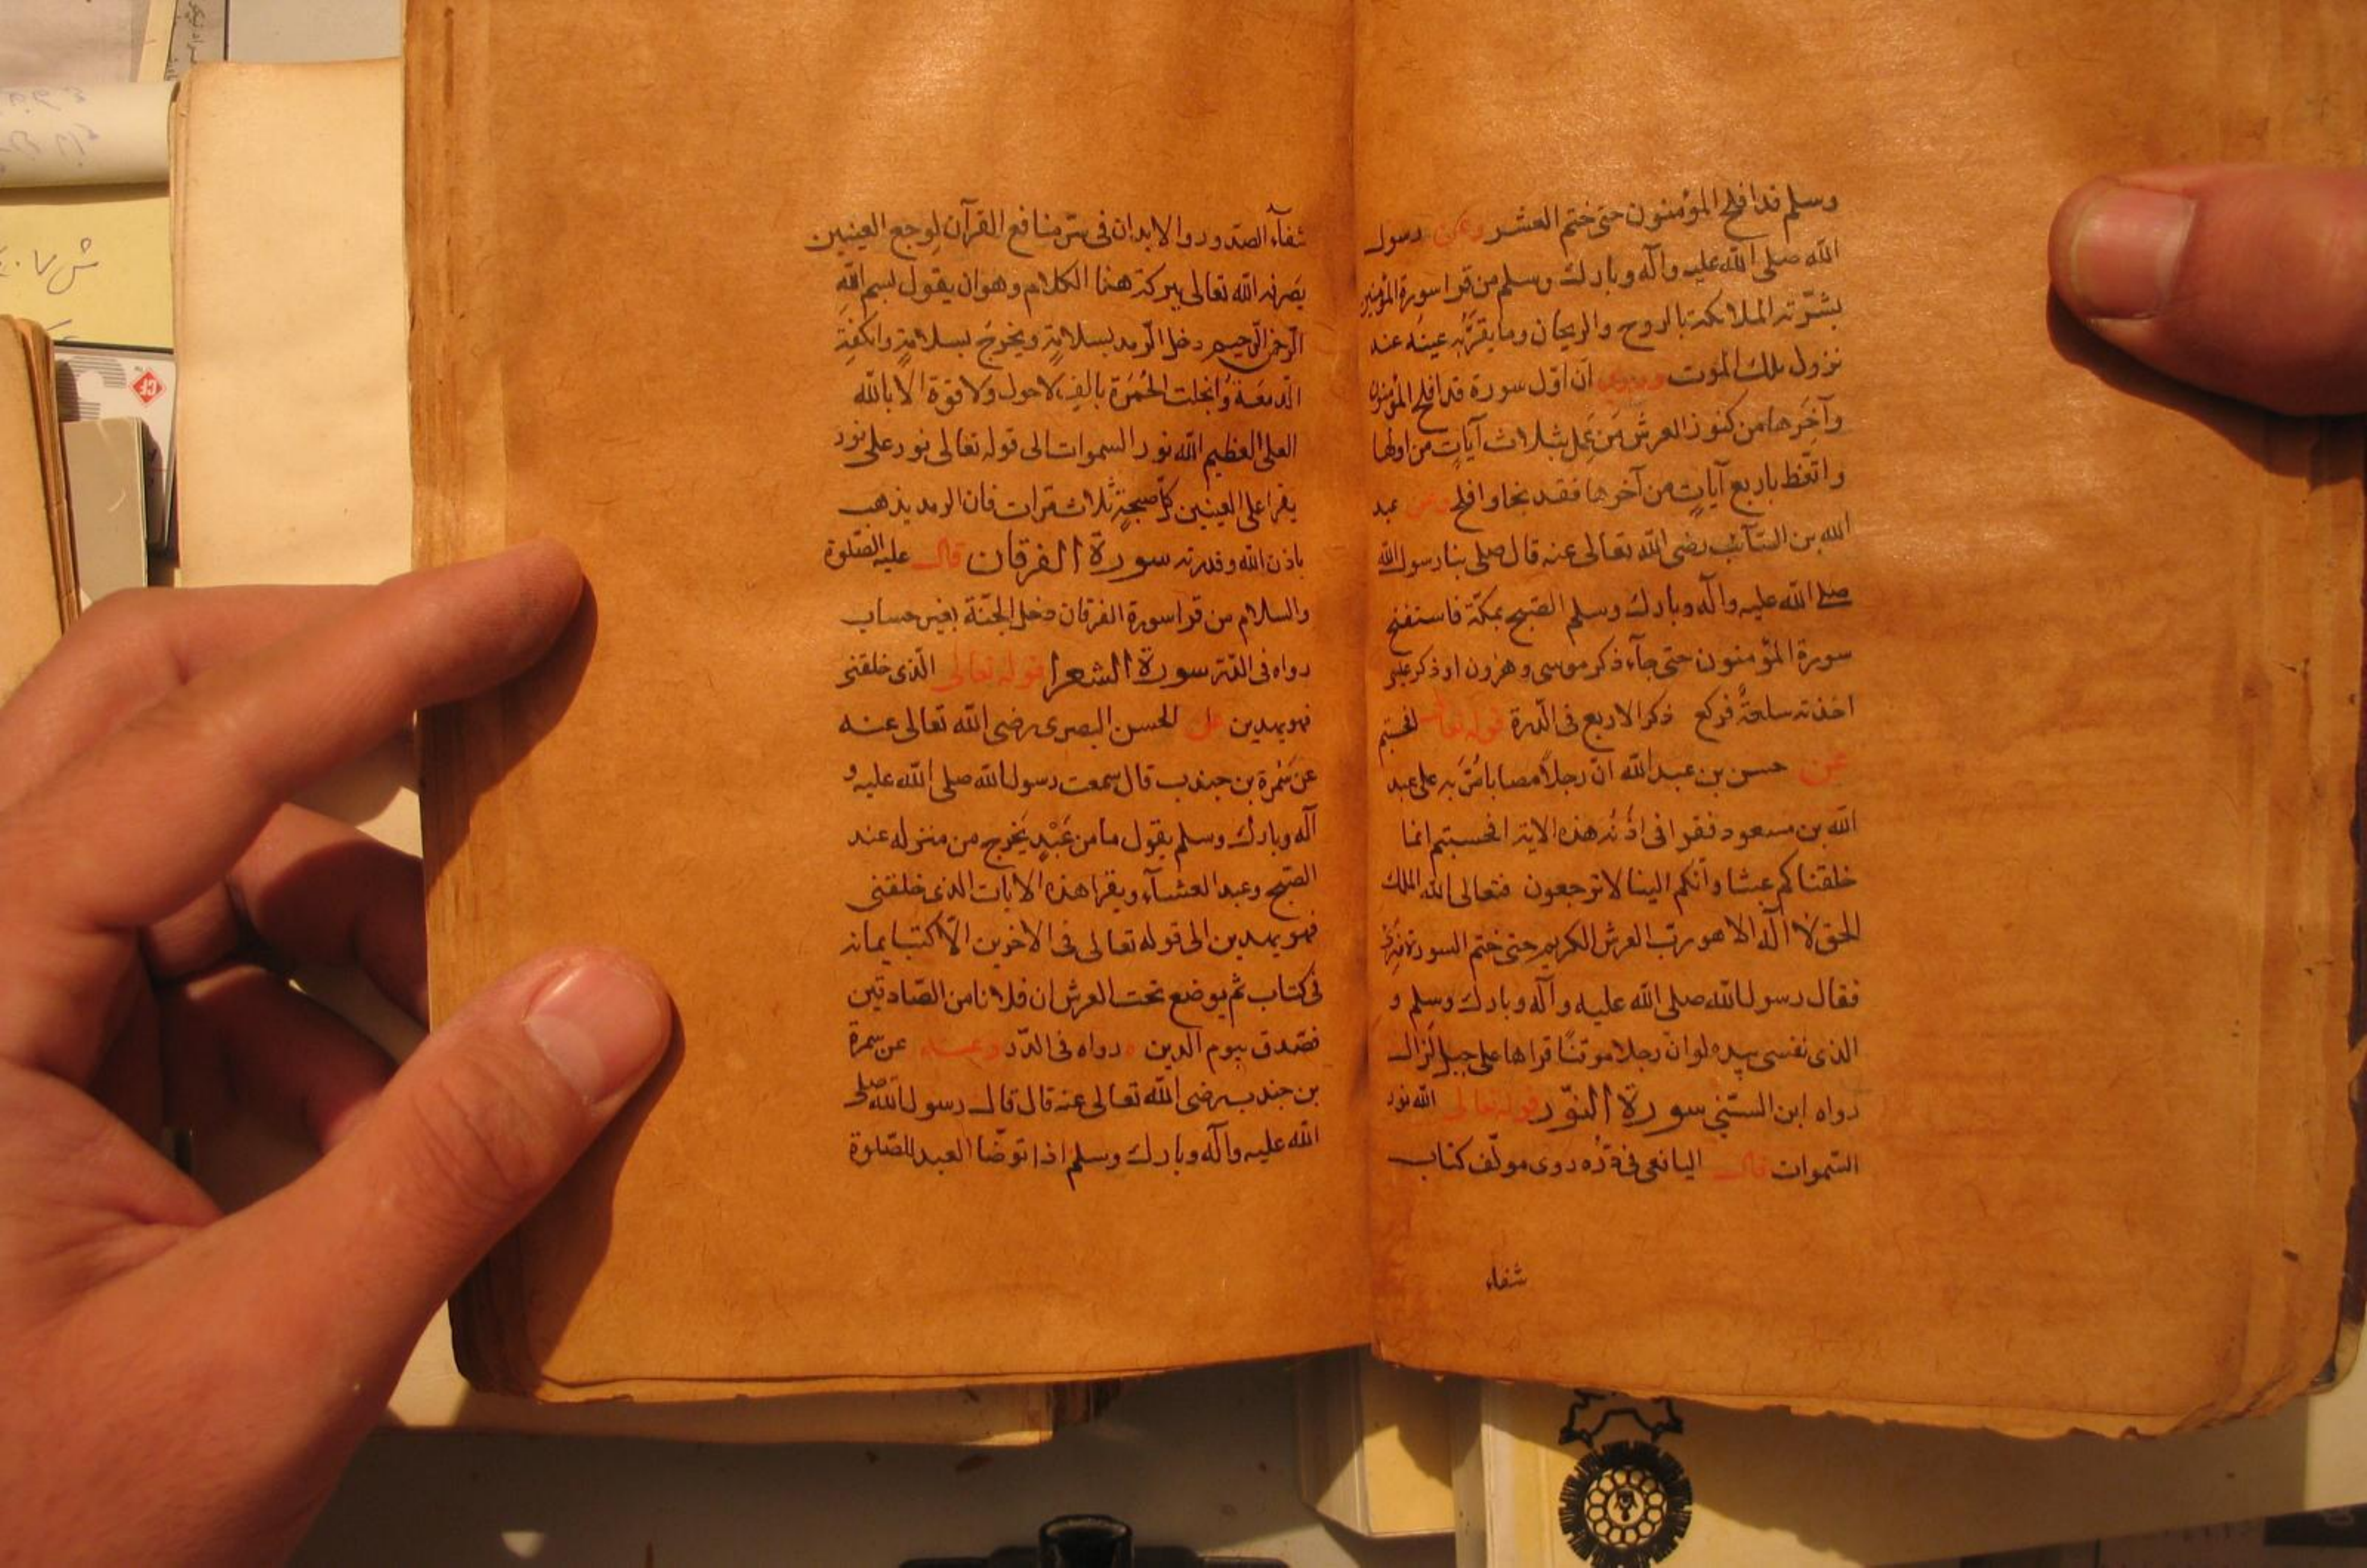 وسلم قد افلح المؤمنون حتى ختم العشر وعن رسول
الله صلى الله عليه وآله وبارك وسلم من قرا سورة المؤمنين
بشرته الملائكة بالروح والريحان وما يقرّ به عينه عند
نزول ملك الموت وروى ان اول سورة قد افلح المؤمنون
وآخرها من كنوز العرش من عمل بثلاث آيات من اولها
واتعظ باربع آيات من آخرها فقد نجا وافلح وعن عبد
الله بن السائب رضى الله تعالى عنه قال صلى بنا رسول الله
صلى الله عليه وآله وبارك وسلم الصبح بمكة فاستفتح
سورة المؤمنون حتى جآء ذكر موسى وهرون او ذكر عيسى
اخذته سلعة فركع ذكر الاربع فى الدرة قوله تعالى افحسبتم
عن حسن بن عبد الله ان رجلا مصابا مُرّ به على عبد
الله بن مسعود فقرا فى اذنه هذه الاية افحسبتم انما
خلقناكم عبثا وانكم الينا لا ترجعون فتعالى الله الملك
الحق لا اله الا هو ربّ العرش الكريم حتى ختم السورة
فقال رسول الله صلى الله عليه وآله وبارك وسلم و
الذى نفسى بيده لو ان رجلا موقنًا قراها على جبل لزال
رواه ابن السنّى سورة النّور قوله تعالى الله نور
السّموات قال اليافعى فى دُرّه روى مولّف كتاب
شفاء
شفآء الصّدور والابدان فى سرّ منافع القرآن لوجع العينين
يصرفه الله تعالى ببركة هذا الكلام وهو ان يقول بسم الله
الرّحمن الرّحيم دخل الرّمد بسلامةٍ ويخرجَ بسلامةٍ وانكفتِ
الدّمعة وانجلت الحُمرَة بالف لا حول ولا قوة الا بالله
العلى العظيم الله نور السموات الى قوله تعالى نور على نور
يقرا على العينين كلّ صبيحةٍ ثلاث مّرات فان الرمد يذهب
باذن الله وقدرته سورة الفرقان قال عليه الصّلوة
والسلام من قرا سورة الفرقان دخل الجنّة بغير حساب
رواه فى الدّرة سورة الشعرا قوله تعالى الّذى خلقنى
فهو يهدين عن الحسن البصرى رضى الله تعالى عنه
عن سَمُرة بن جندب قال سمعت رسول الله صلى الله عليه و
آله وبارك وسلم يقول ما من عَبْدٍ يَخرج من منزله عند
الصّبح وعند العشآء ويقرا هذه الايات الذى خلقنى
فهو يهدين الى قوله تعالى فى الاخرين الّا اكتب ايمانه
فى كتاب ثم يوضع تحت العرش ان فلانا من الصّادقين
فصّدق بيوم الدين رواه فى الدّر وعنه عن سمرة
بن جندب رضى الله تعالى عنه قال قال رسول الله صلى
الله عليه وآله وبارك وسلم اذا توضّا العبد للصّلوة